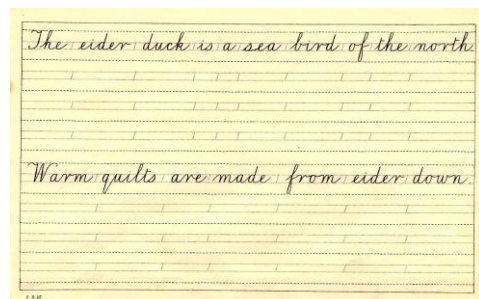 The eider duck is a sea bird of the north.
Warm quilts are made from eider down.